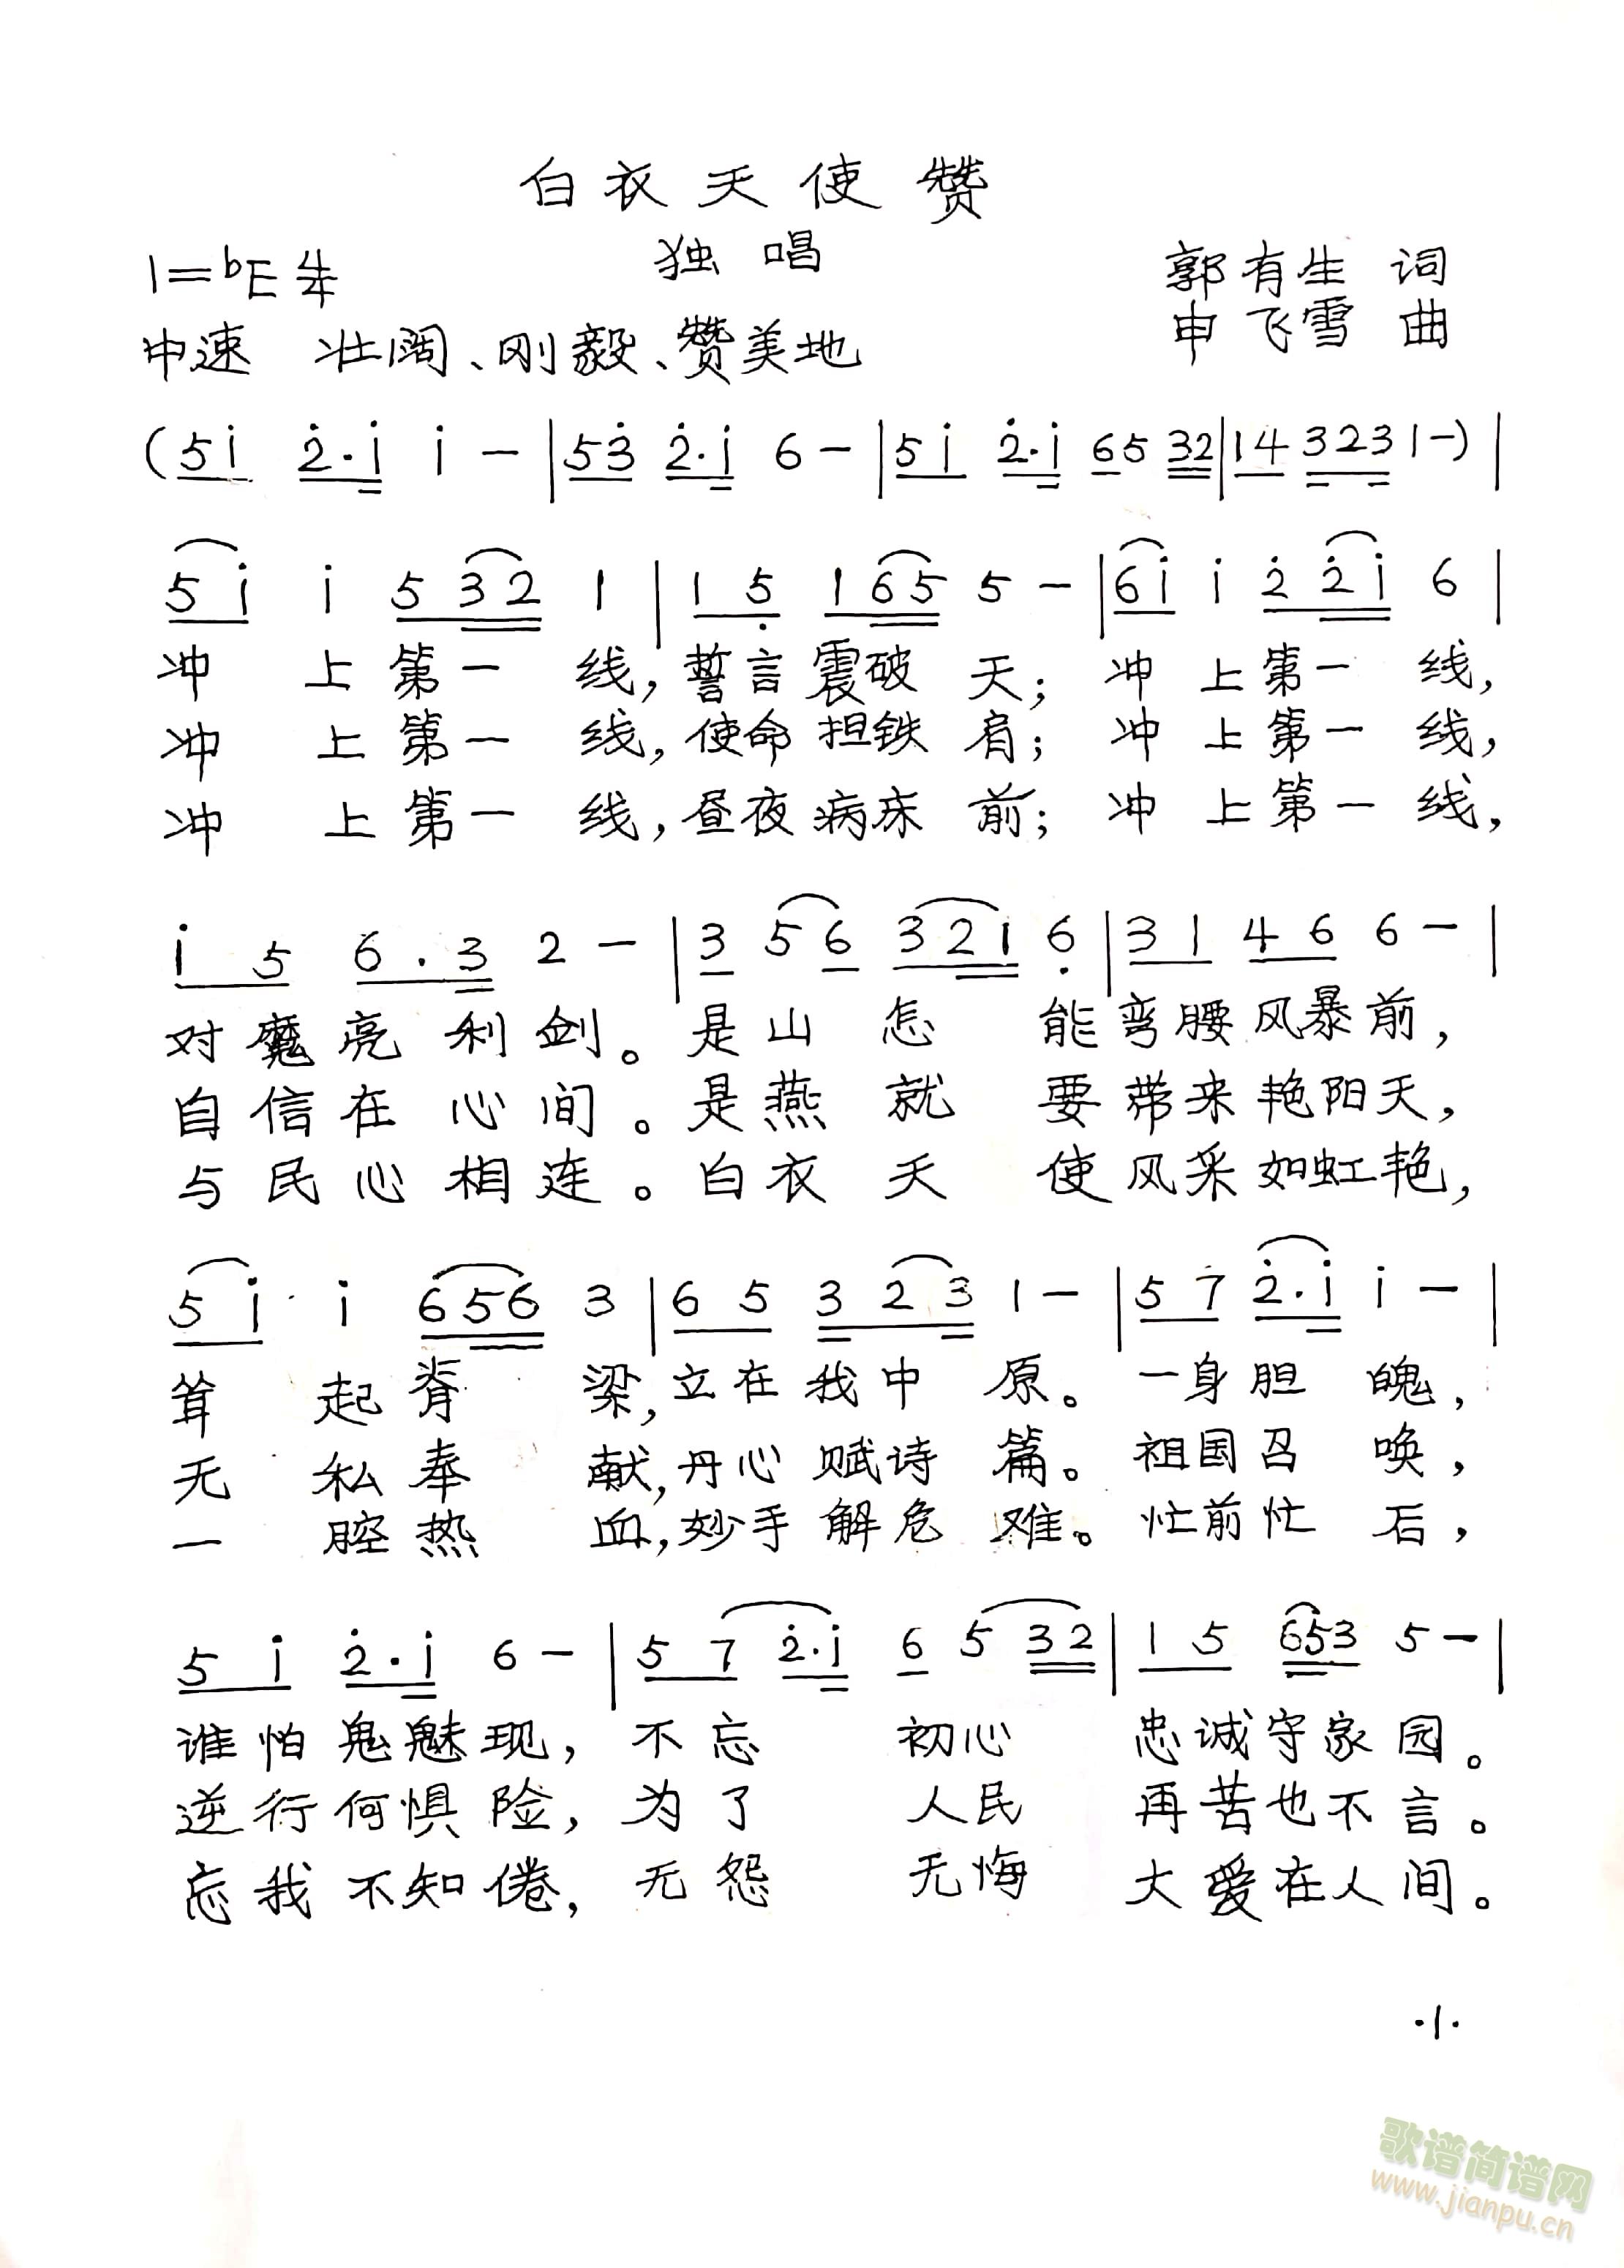 白衣天使赞
独唱
1=bE 4/4
郭有生 词
中速 壮阔、刚毅、赞美地
申飞雪 曲
(5i 2·i i - | 53 2·i 6 - | 5i 2·i 65 32 | 14 323 1 -) |
5i i 532 1 | 15 165 5 - | 6i i 22i 6 |
冲上第一线,誓言震破天;冲上第一线,
冲上第一线,使命担铁肩;冲上第一线,
冲上第一线,昼夜病床前;冲上第一线,
i5 6·3 2 - | 3 56 321 6 | 31 46 6 - |
对魔亮利剑。是山怎能弯腰风暴前,
自信在心间。是燕就要带来艳阳天,
与民心相连。白衣天使风采如虹艳,
5i i 656 3 | 65 323 1 - | 57 2·i i - |
耸起脊梁,立在我中原。一身胆魄,
无私奉献,丹心赋诗篇。祖国召唤,
一腔热血,妙手解危难。忙前忙后,
5i 2·i 6 - | 57 2·i 6 5 32 | 15 653 5 - |
谁怕鬼魅现,不忘初心忠诚守家园。
逆行何惧险,为了人民再苦也不言。
忘我不知倦,无怨无悔大爱在人间。
·1·
歌谱简谱网
www.jianpu.cn